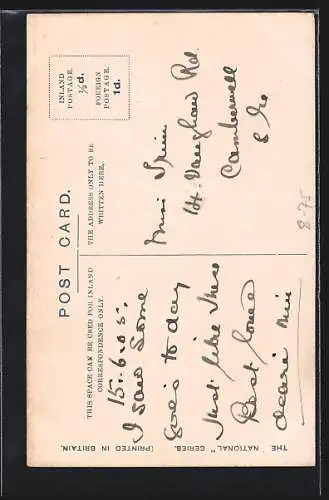 POST CARD.
THIS SPACE CAN BE USED FOR INLAND
CORRESPONDENCE ONLY.
THE ADDRESS ONLY TO BE
WRITTEN HERE.
INLAND
POSTAGE.
½d.
FOREIGN
POSTAGE.
1d.
15.6.05.
I saw some
girls to day
Just like these
Best love
dearie
Miss
14. Vaughan Rd
Camberwell
S Eo
8-75
THE "NATIONAL" SERIES.
(PRINTED IN BRITAIN.